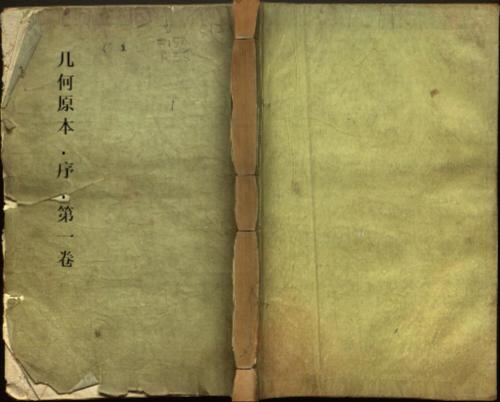 几何原本·序·第一卷